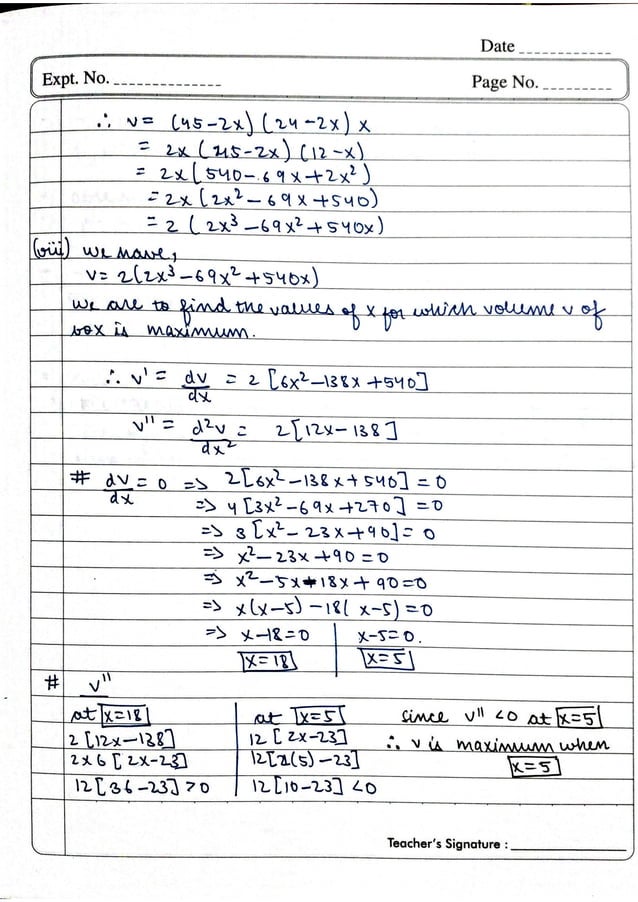 Date
Expt. No.
Page No.
∴ v = (45-2x) (24-2x) x
= 2x (45-2x) (12-x)
= 2x (540-69x+2x²)
= 2x (2x² - 69x + 540)
= 2 (2x³ - 69x² + 540x)
(viii) we have,
v = 2(2x³ - 69x² + 540x)
we are to find the values of x for which volume v of
box is maximum.
∴ v' = dv/dx = 2 [6x² - 138x + 540]
v'' = d²v/dx² = 2[12x - 138]
# dv/dx = 0 => 2[6x² - 138x + 540] = 0
=> 4 [3x² - 69x + 270] = 0
=> 3 [x² - 23x + 90] = 0
=> x² - 23x + 90 = 0
=> x² - 5x - 18x + 90 = 0
=> x(x-5) - 18( x-5) = 0
=> x-18=0 | x-5=0.
x=18 | x=5
# v''
at x=18 | at x=5 since v'' <0 at x=5
2[12x-138] | 12 [2x-23] ∴ v is maximum when
2x6 [2x-23] | 12[2(5) - 23] x=5
12[36-23] >0 | 12[10-23] <0
Teacher's Signature :